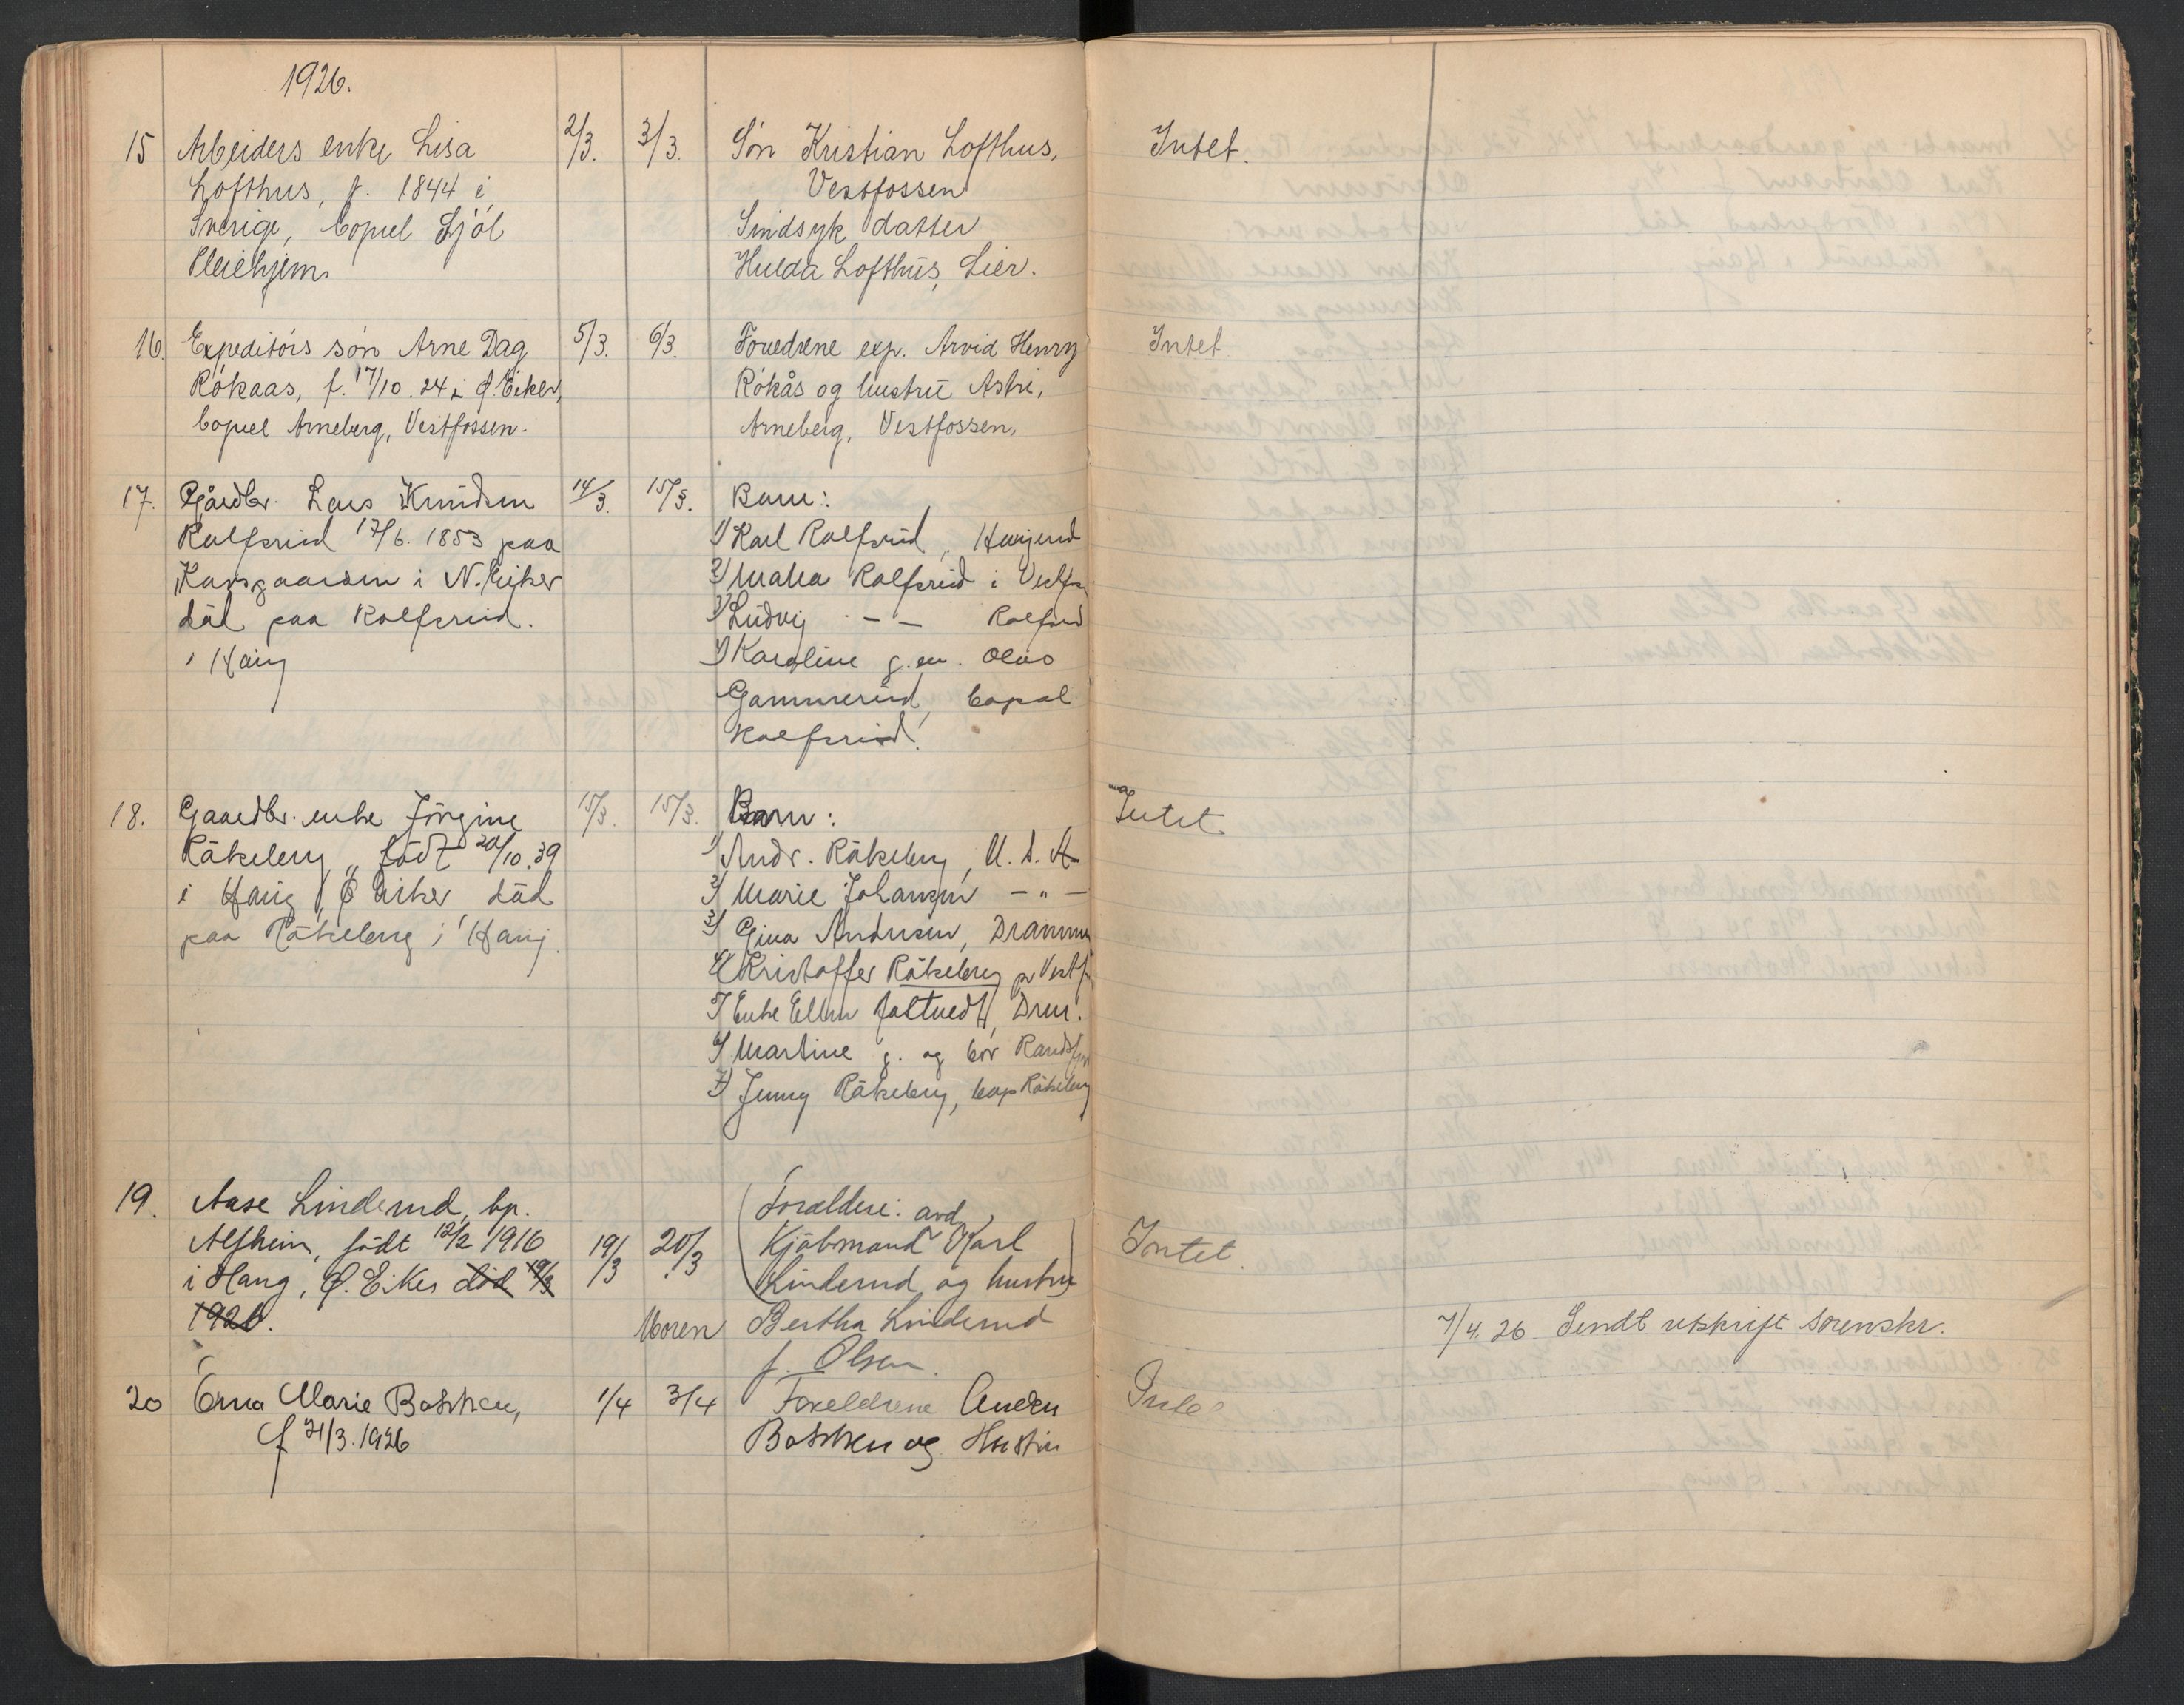 1926.
15 Arbeiders enke Lisa 2/3. 3/3. Søn Kristian Lofthus, Intet.
Lofthus, f. 1844 i Vestfossen
Sverige, bopel Sjøl Sindsyk datter
Pleiehjem Hulda Lofthus, Lier.
16. Expeditørs søn Arne Dag 5/3. 6/3. Forældrene exp. Arvid Henry Intet
Røkaas, f. 17/10.24 i Ø. Eiker, Røkås og hustru Astri,
bopel Arneberg, Vestfossen. Arneberg, Vestfossen.
17. Gårdbr. Lars Knudsen 14/3. 15/3. Barn:
Rolfsrud 17/6. 1853 paa 1) Karl Rolfsrud,
i N. Eiker 2) Rolfsrud i Vestfs
død paa Rolfsrud. 3) Ludvig - - Rolfsrud
i Haug 4) Karoline g. m. Olas
Gammerud, bopæl
Rolfsrud.
18. Gaardbr. enke Jørgine 15/3. 15/3. Barn: Intet
Råkeberg, født 20/10.39 1) Andr. Råkeberg, U.S.A
i Haug, Ø Eiker død 2) Marie Johansen - " -
paa Råkeberg i Haug. 3) Gina Andersen, Drammen
4) Kristoffer Råkeberg pr Vestf.
5) Enke Ellen Drm.
6) Martine g. og bor Randsfj
7) Jenny Råkeberg, bop Råkeberg
19. Aase Linderud, bp. Forældre: avd.
Alfheim, født 12/2 1916 19/3 20/3 Kjøbmand Karl Intet.
i Haug, Ø. Eiker død 19/3 Linderud og hustru
1926. Moren Bertha Linderud 7/4.26 Sendt utskrift Sorenskr.
f. Olsen.
20 Erna Marie Bakken, 1/4 3/4 Foreldrene Intet
f 21/3.1926 Bakken og Hustru